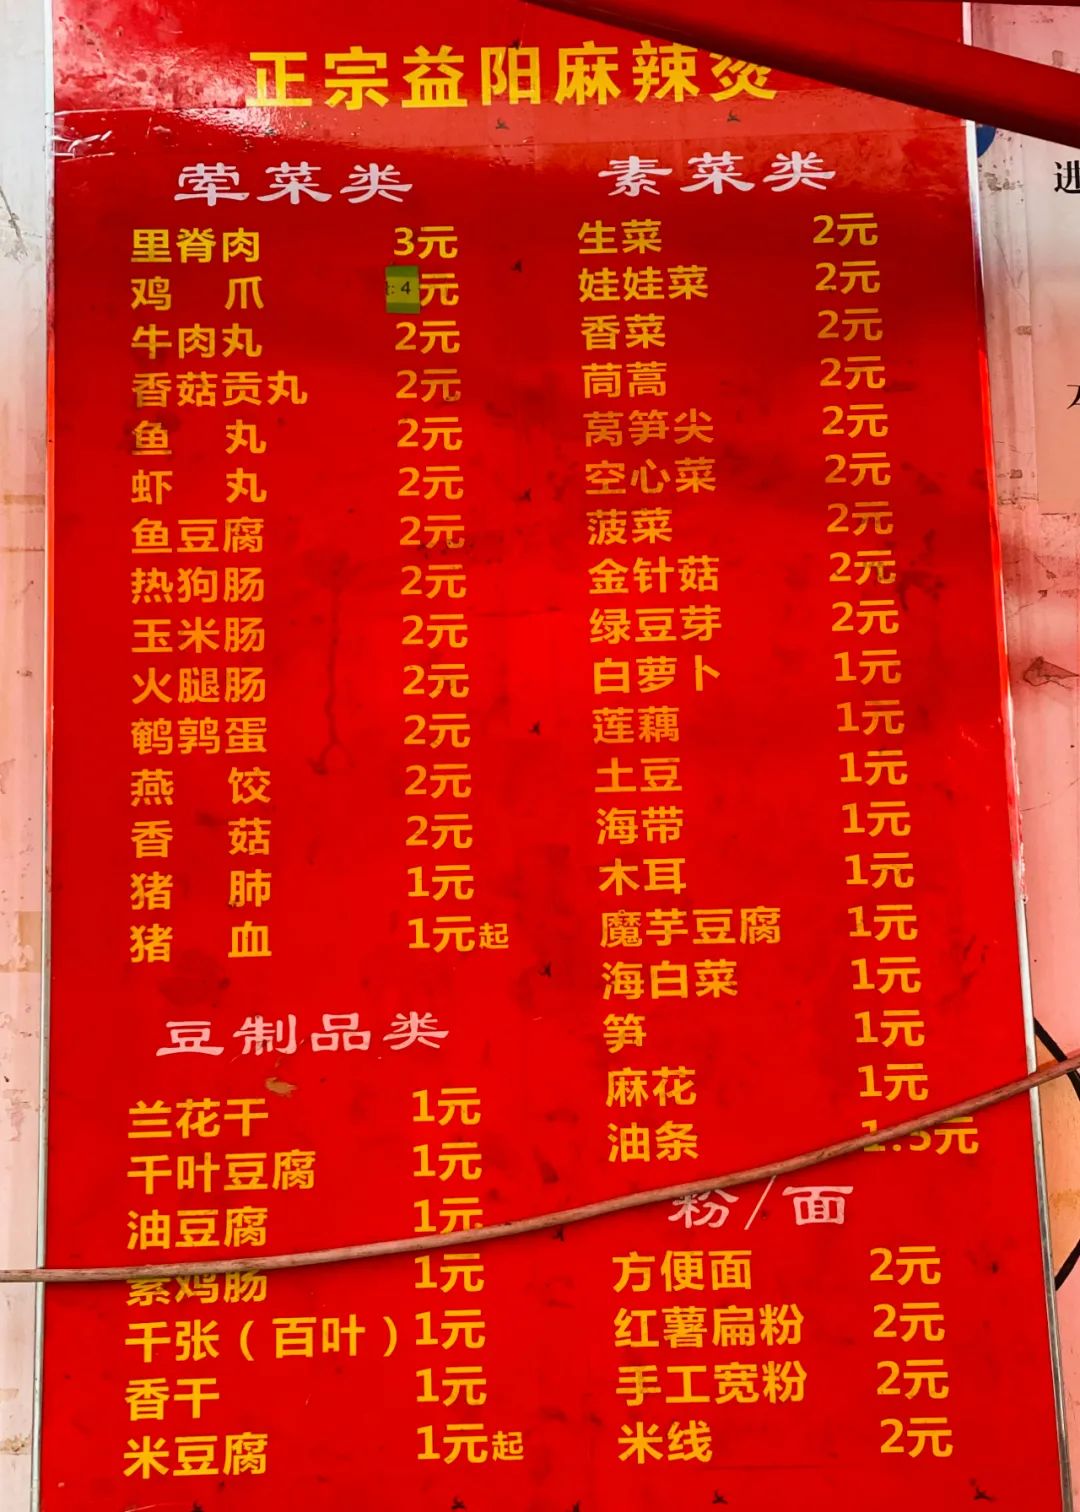 正宗益阳麻辣烫
荤菜类
里脊肉 3元
鸡 爪 4元
牛肉丸 2元
香菇贡丸 2元
鱼 丸 2元
虾 丸 2元
鱼豆腐 2元
热狗肠 2元
玉米肠 2元
火腿肠 2元
鹌鹑蛋 2元
燕 饺 2元
香 菇 2元
猪 肺 1元
猪 血 1元起
豆制品类
兰花干 1元
千叶豆腐 1元
油豆腐 1元
素鸡肠 1元
千张（百叶）1元
香干 1元
米豆腐 1元起
素菜类
生菜 2元
娃娃菜 2元
香菜 2元
茼蒿 2元
莴笋尖 2元
空心菜 2元
菠菜 2元
金针菇 2元
绿豆芽 2元
白萝卜 1元
莲藕 1元
土豆 1元
海带 1元
木耳 1元
魔芋豆腐 1元
海白菜 1元
笋 1元
麻花 1元
油条 1.5元
粉/面
方便面 2元
红薯扁粉 2元
手工宽粉 2元
米线 2元